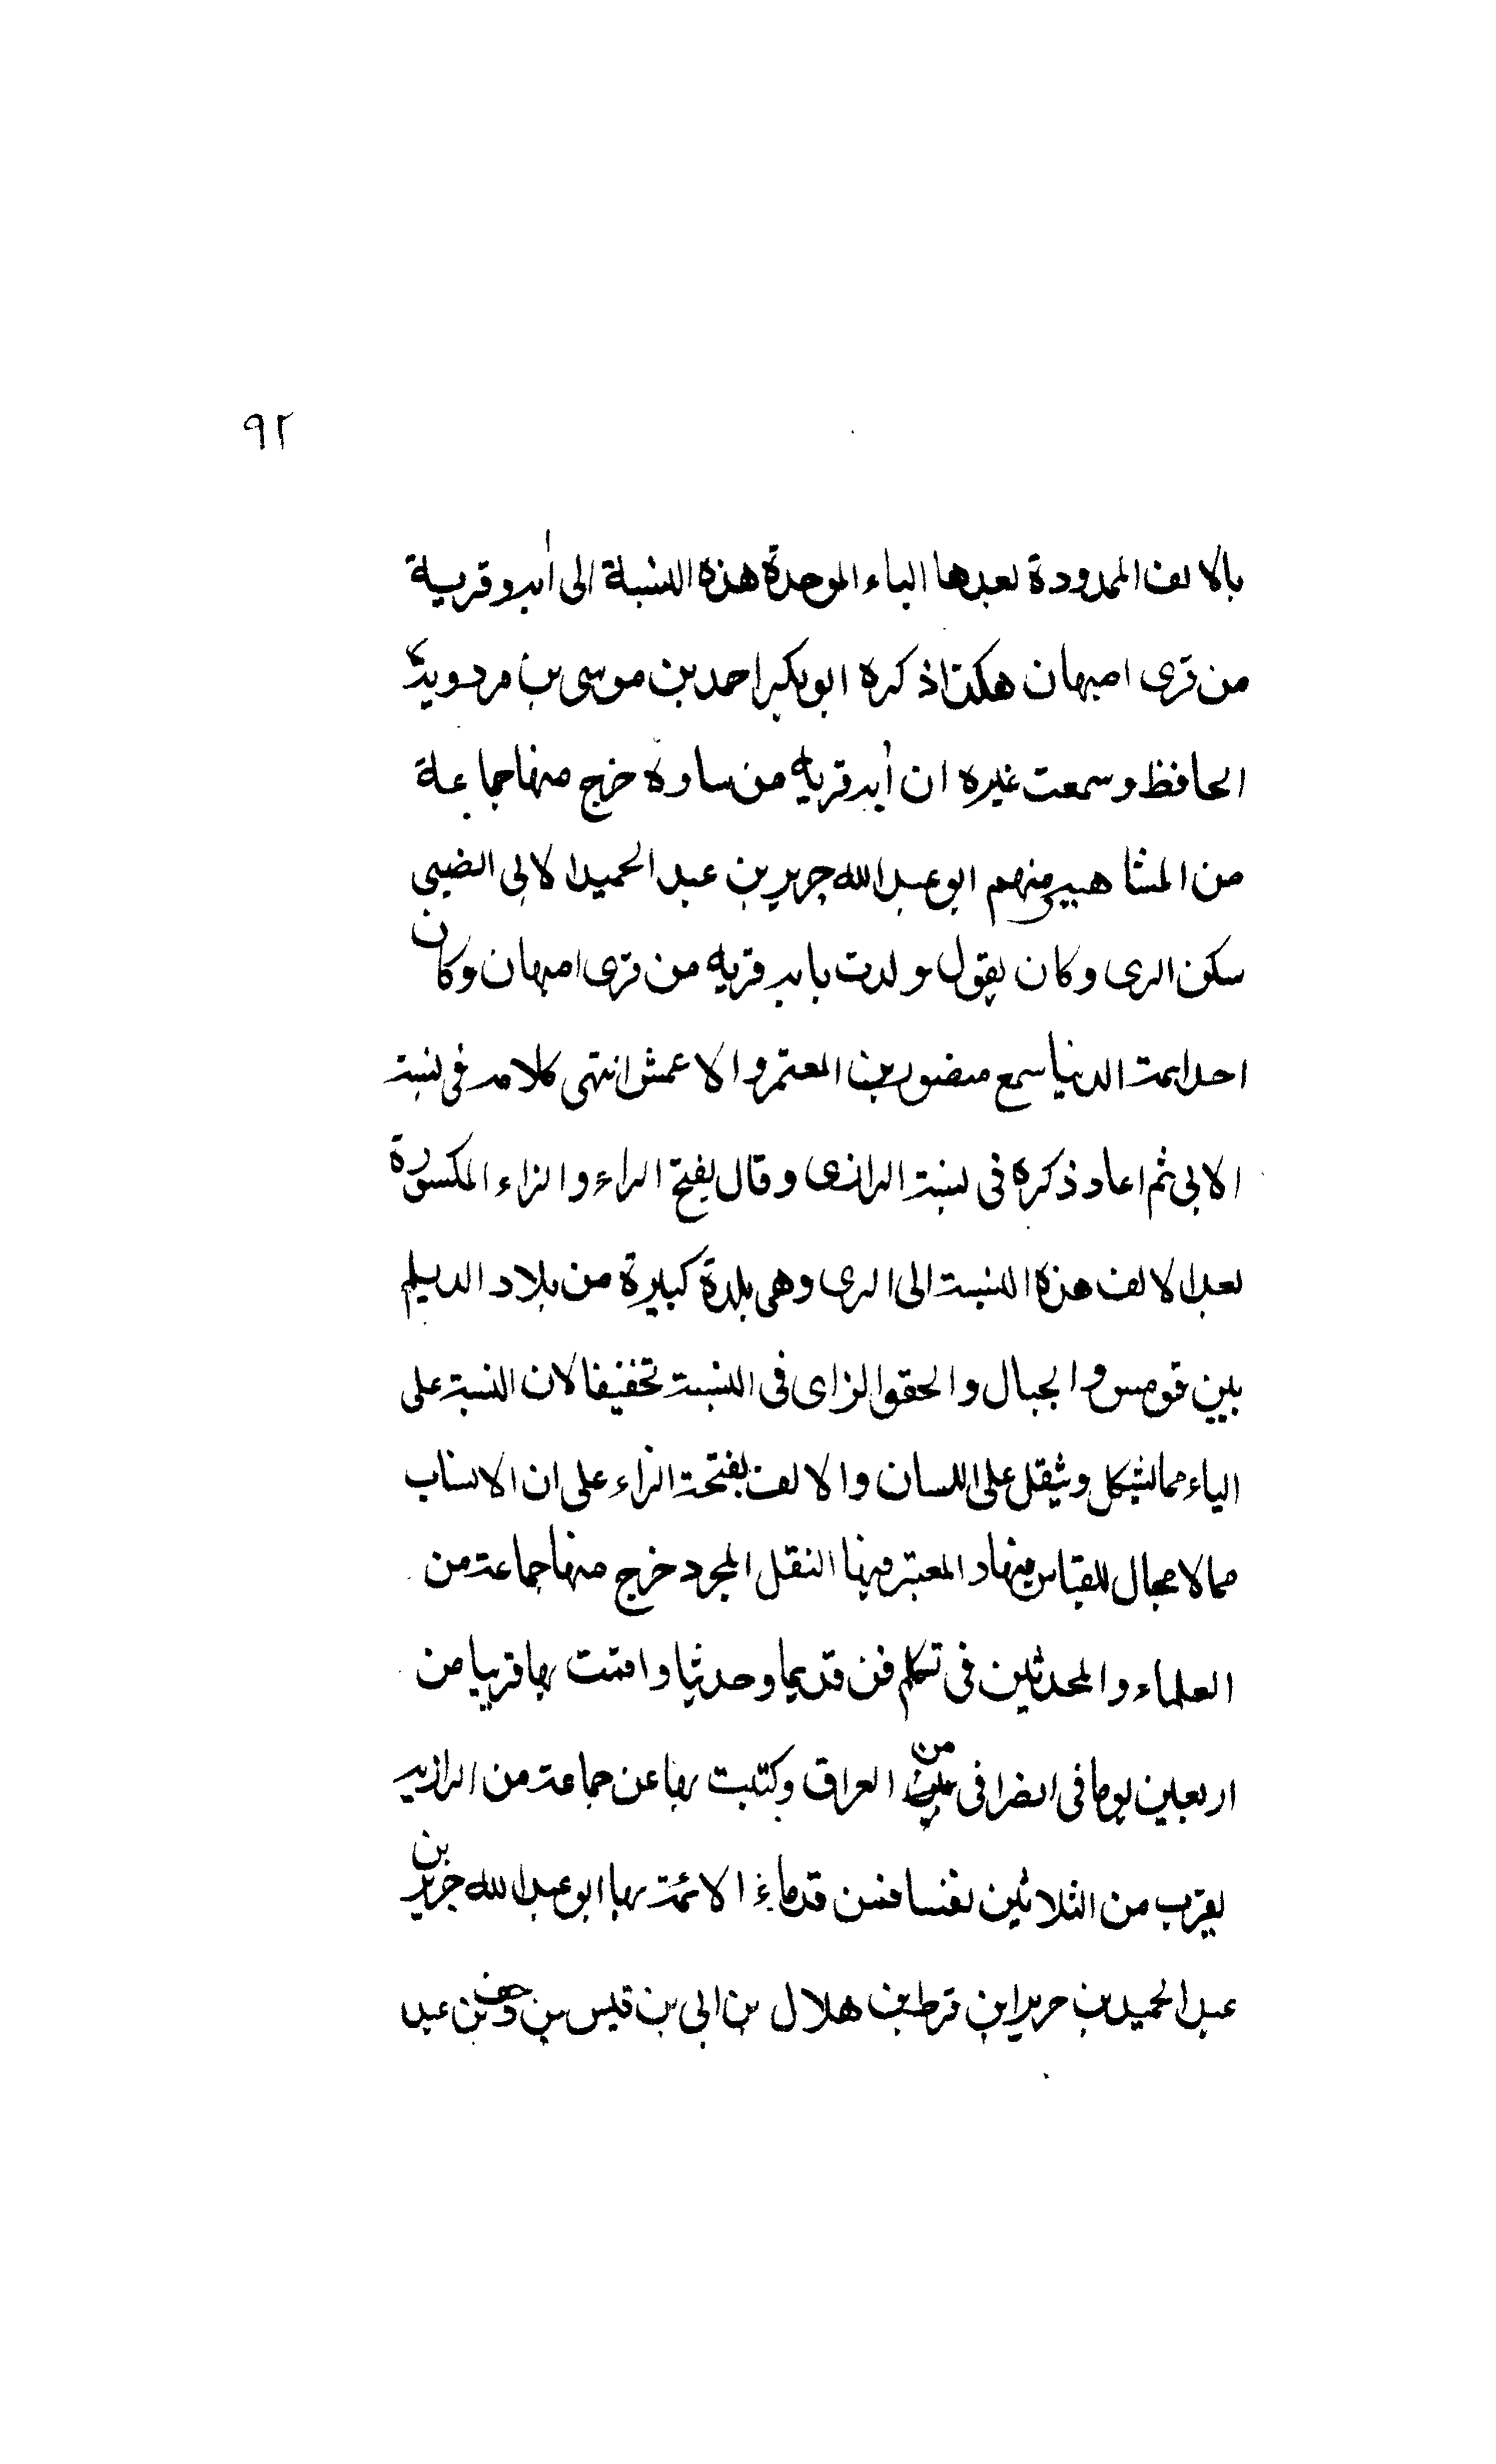 ٩٢
بالالف الممدودة بعدها الباء الموحدة هذه النسبة الى أبه وقرية
من قرى اصبهان هكذا ذكره ابوبكر احمد بن موسى بن مردويه
الحافظ وسمعت غيره ان أبه قريه من ساوة خرج منها جماعة
من المشاهير منهم ابو عبد الله جرير بن عبد الحميد الابى الضبى
سكن الرى وكان يقول ولدت بابه قريه من قرى اصبهان وكان
احد ايمة الدنيا سمع منصور بن المعتمر والاعمش انتهى كلامه فى نسبة
الابى ثم اعاد ذكره فى نسبة الرازى وقال بفتح الراء والزاء المكسورة
بعد الالف هذه النسبة الى الرى وهى بلدة كبيرة من بلاد الديلم
بين قومس والجبال والحقوا الزاى فى النسبة تخفيفا لان النسبة على
الياء مما يشكل ويثقل على اللسان والالف لفتحة الراء على ان الانساب
مما لا مجال للقياس فيها والمعتبر فيها النقل المجرد خرج منها جماعة من
العلماء والمحدثين فى كل فن قديما وحديثا واقمت بها قريبا من
اربعين يوما فى انصرافى من العراق وكتبت بها عن جماعة من الرازيه
يقرب من الثلاثين نفسا فمن قدماء الائمة بها ابو عبد الله جرير بن
عبد الحميد بن جرير ابن قرط بن هلال بن ابى بن قيس بن وحف بن عبد